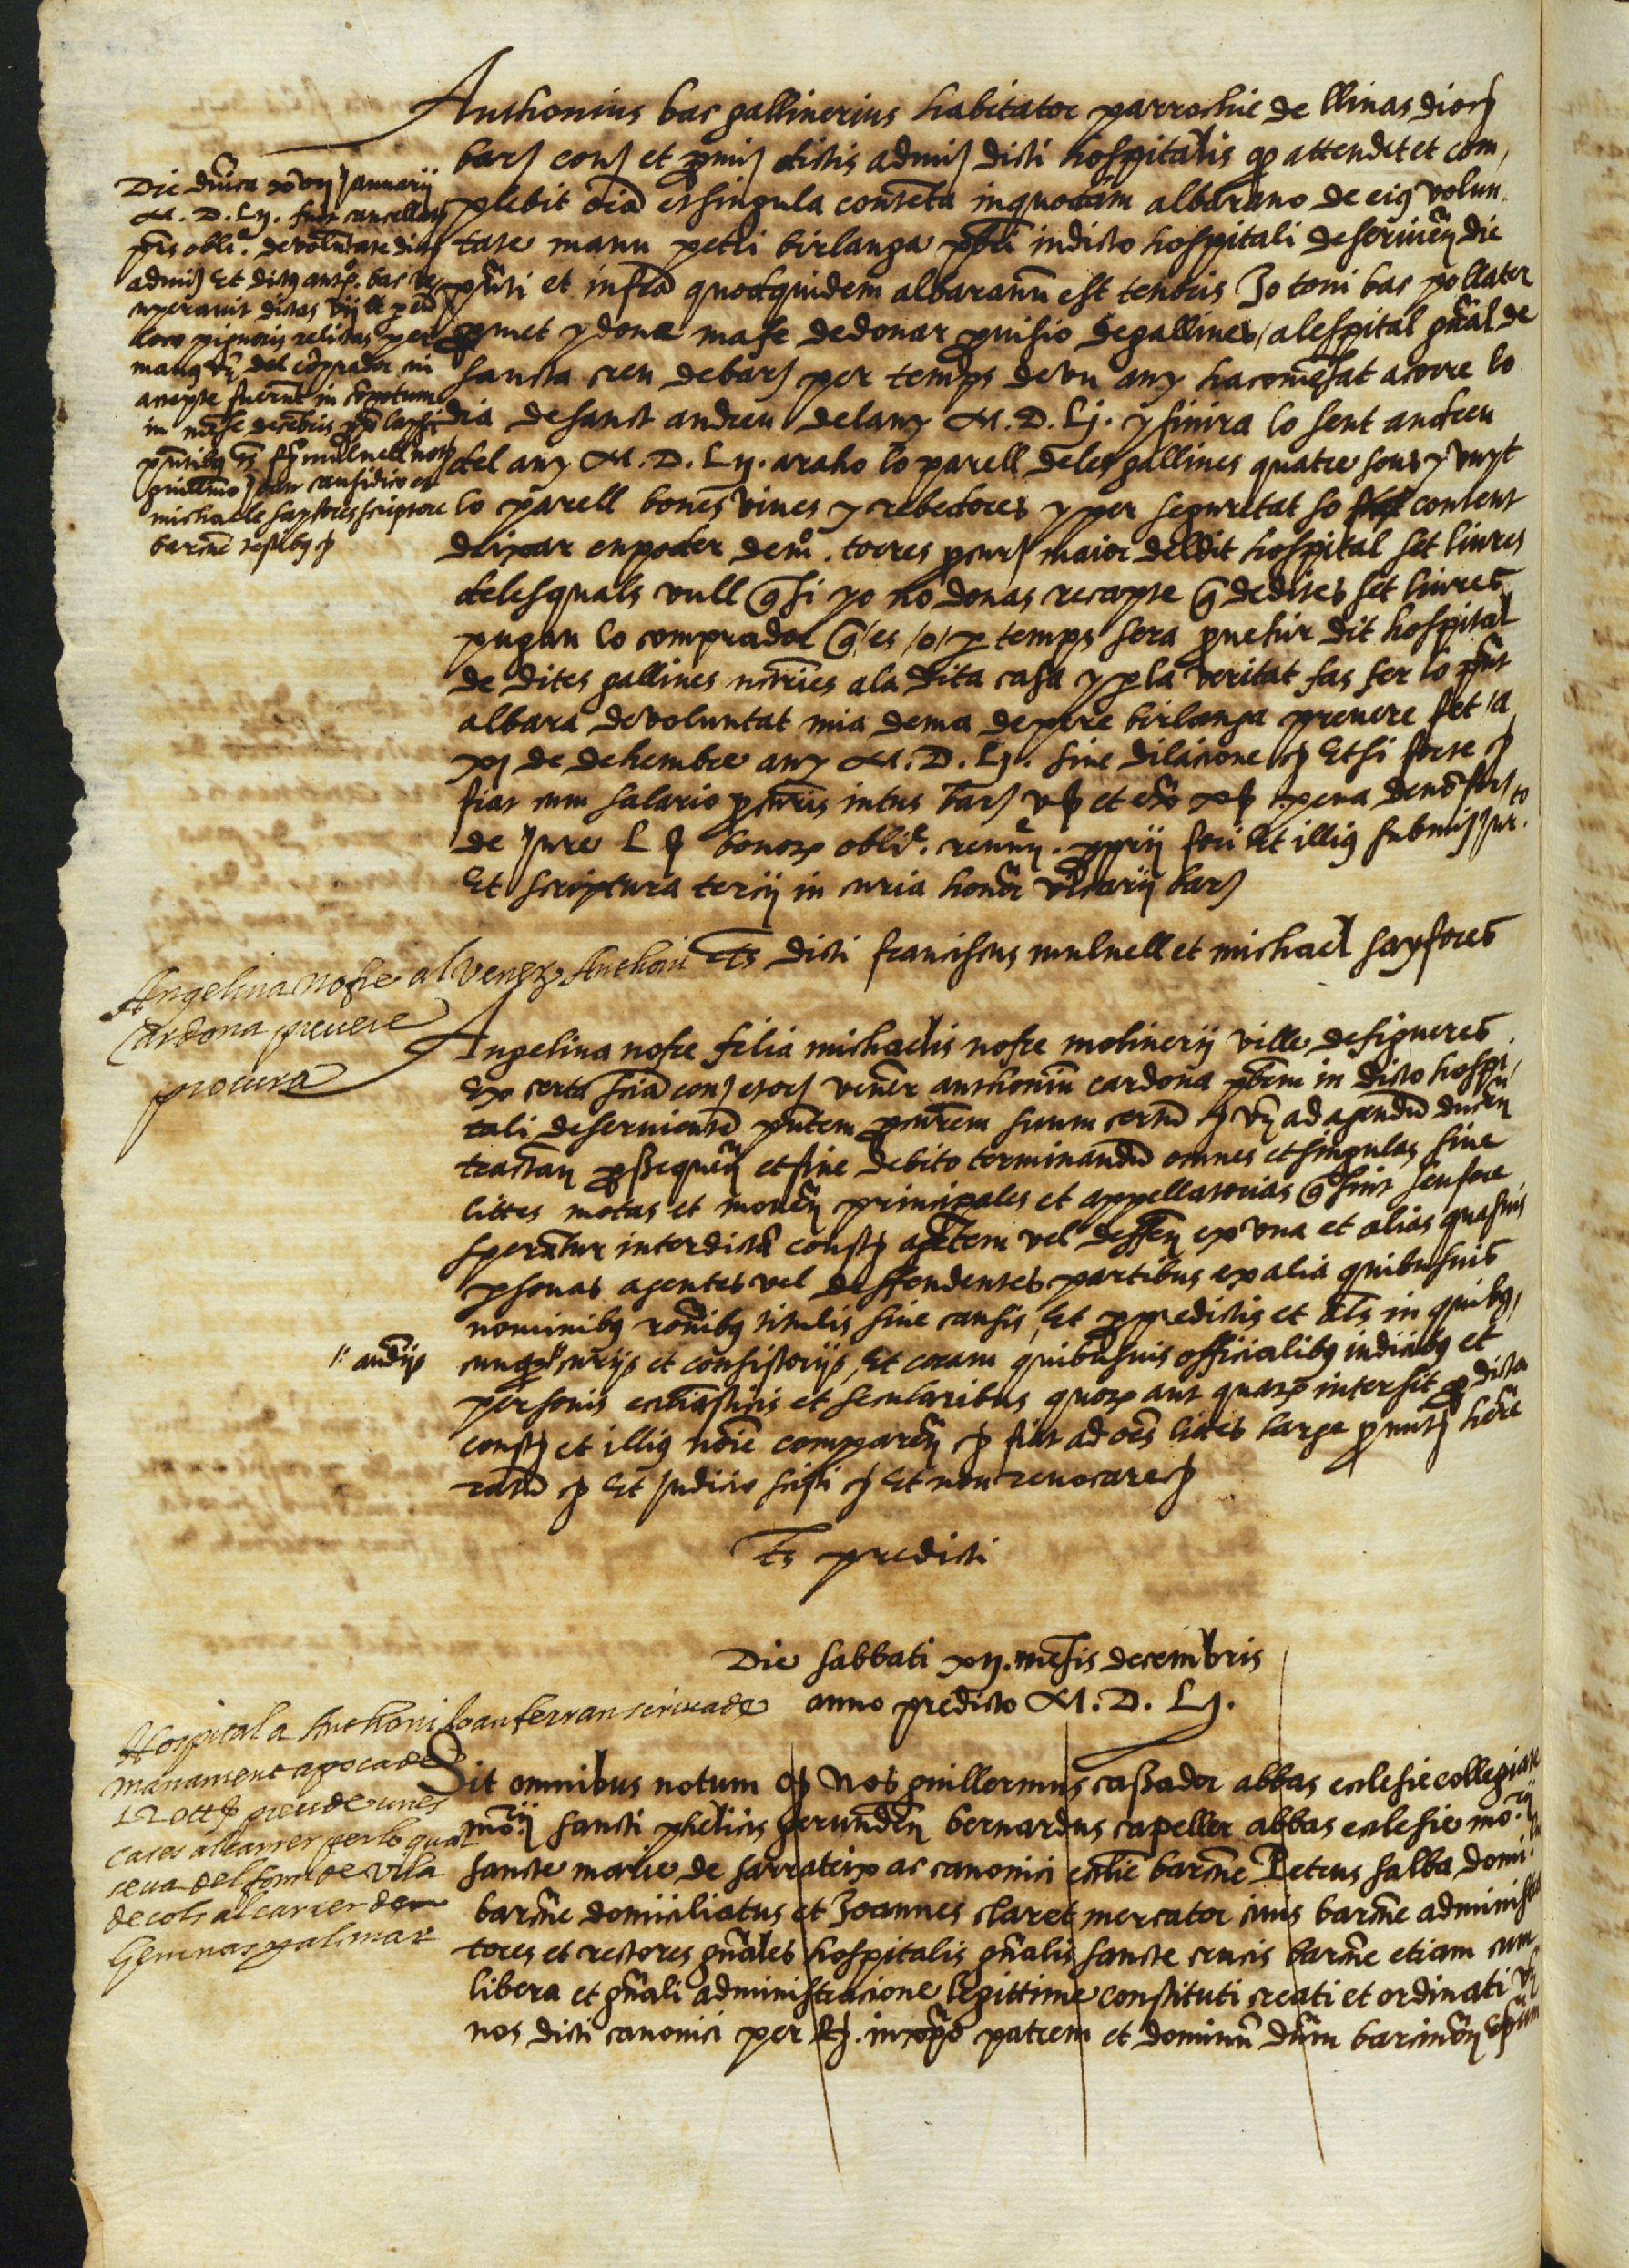 Anthonius bas gallinerius habitator parrochie de llinas dioc
barc conf et promi dictis admi dicti hospitalis q attendet et com
plebit oia et singula contenta in quodam albarano de eius volun
tate manu petri birlanga pbri in dicto hospitali deservien die
pnti et infra quod quidem albaranu est tenoris Jo toni bas pollater
promet y dona ma fe de donar provisio de gallines / al espital gnal de
sancta creu de barc per temps de un any ha comesat a corre lo
dia de sanct andreu del any M. D. Lj. y finira lo sent andreu
del any M. D. Lij. a raho lo parell de les gallines quatre sous y vuyt
lo parell bones vives y rebedores y per seguretat so content
deixar en poder de mo. torres procur maior del dit hospital set liures
de les quals vull q si yo no donas recapte q de dites set liures
pugau lo comprador q es /o/ p temps sera provehir dit hospital
de dites gallines ncries a la dita casa y p la veritat fas fer lo pnt
albara de voluntat mia de ma de pere birlanga prevere fet a
xj de dehembre any M. D. Lj. sine dilacione Et si forte
fiat cum salario procuris intus barc
de jure bonor obli. renun. proprii fori Et illius submis Jur.
Et scriptura tercij in curia honor vicarii barc
Die dnica xvij Januarij
M. D. Lij. fuit cancellat
pns obli. de voluntate dict
admi Et dictus anto. bas re
cuperavit dictas vij ll
loco pignoris relictas per
manus del comprador
accepte fuerunt in compotum
in mense decembris lapsi
pntibus fr mulnell not
guillermo causidico et
michaele sayfores scriptore
barcne testibus
Ts dicti franciscus mulnell et michael sayfores
Angelina nofre al Vener Anthoni
Cardona prevere
procura
Angelina nofre filia michaelis nofre molinerij ville de figueres
Ex certa scia vener anthoniu cardona pbrm in dicto hospi
tali deserviente pntem procurem suum certu ad agendu ducen
tractan prossequen et fine debito terminandu omnes et singulas sive
littes motas et moven principales et appellatorias q sunt seu fore
speratur inter dicta const agetem vel deffen ex una et alias quasvis
psonas agentes vel deffendentes partibus ex alia quibusvis
nominibus ronibus titulis sive causis, Et pro predictis et als in quibus
cunq curijs et consistorijs, Et coram quibusvis officialibus iudicibus et
audijs
personis ecclia sticis et secularibus quor aut quar intersit pro dicta
const et illius noie comparen fiat ad oes lites large promitt hre
ratu Et Judicio sisti Et non revocare
Ts predicti
Die sabbati xij. mesis decembris
anno predicto M. D. Lj.
Hospital a Anthoni Joan ferran
manament apoca de
12 preu de unes
cases al carrer per lo qual
se va del forn de vila
de cols al carrer den
Gemnas palmar
Sit omnibus notum q Nos guillermus cassador abbas eclesie collegiate
mo.rij sancti phelicis gerunden bernardus capeller abbas eclesie mo.rij
sancte marie de sarrateix ac canonici ecclie barcne Petrus salba domi
barcne domiciliatus et Joannes claret mercator civis barcne administra
tores et rectores gnales hospitalis gnalis sancte crucis barcne etiam cum
libera et gnali administracione legittime constituti creati et ordinati
nos dicti canonici per R. in xpo patrem et dominu dnm barcinon epum